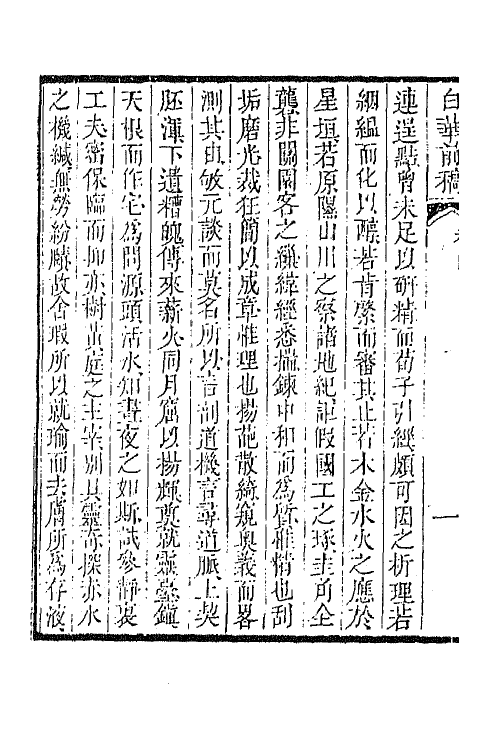 白華前稿
一
連逞點曾未足以研精而荀子引經頗可因之析理若
絪縕而化以醲若肯綮而審其止若木金水火之應於
星垣若原隰山川之察諸地紀詎假國工之琢圭可全
非關園客之繅緯經悉揣鍊中和而為質惟情也刮
垢磨光裁狂簡以成章惟理也揚葩散綺窺奧義而畧
測其由敏元談而莫名所以言制道機言尋道脈上契
胚渾下遺糟醜傳來薪火同月窟以揚輝奠就靈臺鎮
天根而作宅為問源頭活水知晝夜之如斯試參靜裏
工夫密保臨而抑亦樹黃庭之主宰別具靈奇探赤水
之機緘無勞紛賾故舍瑕所以就瑜而去膚所為存液